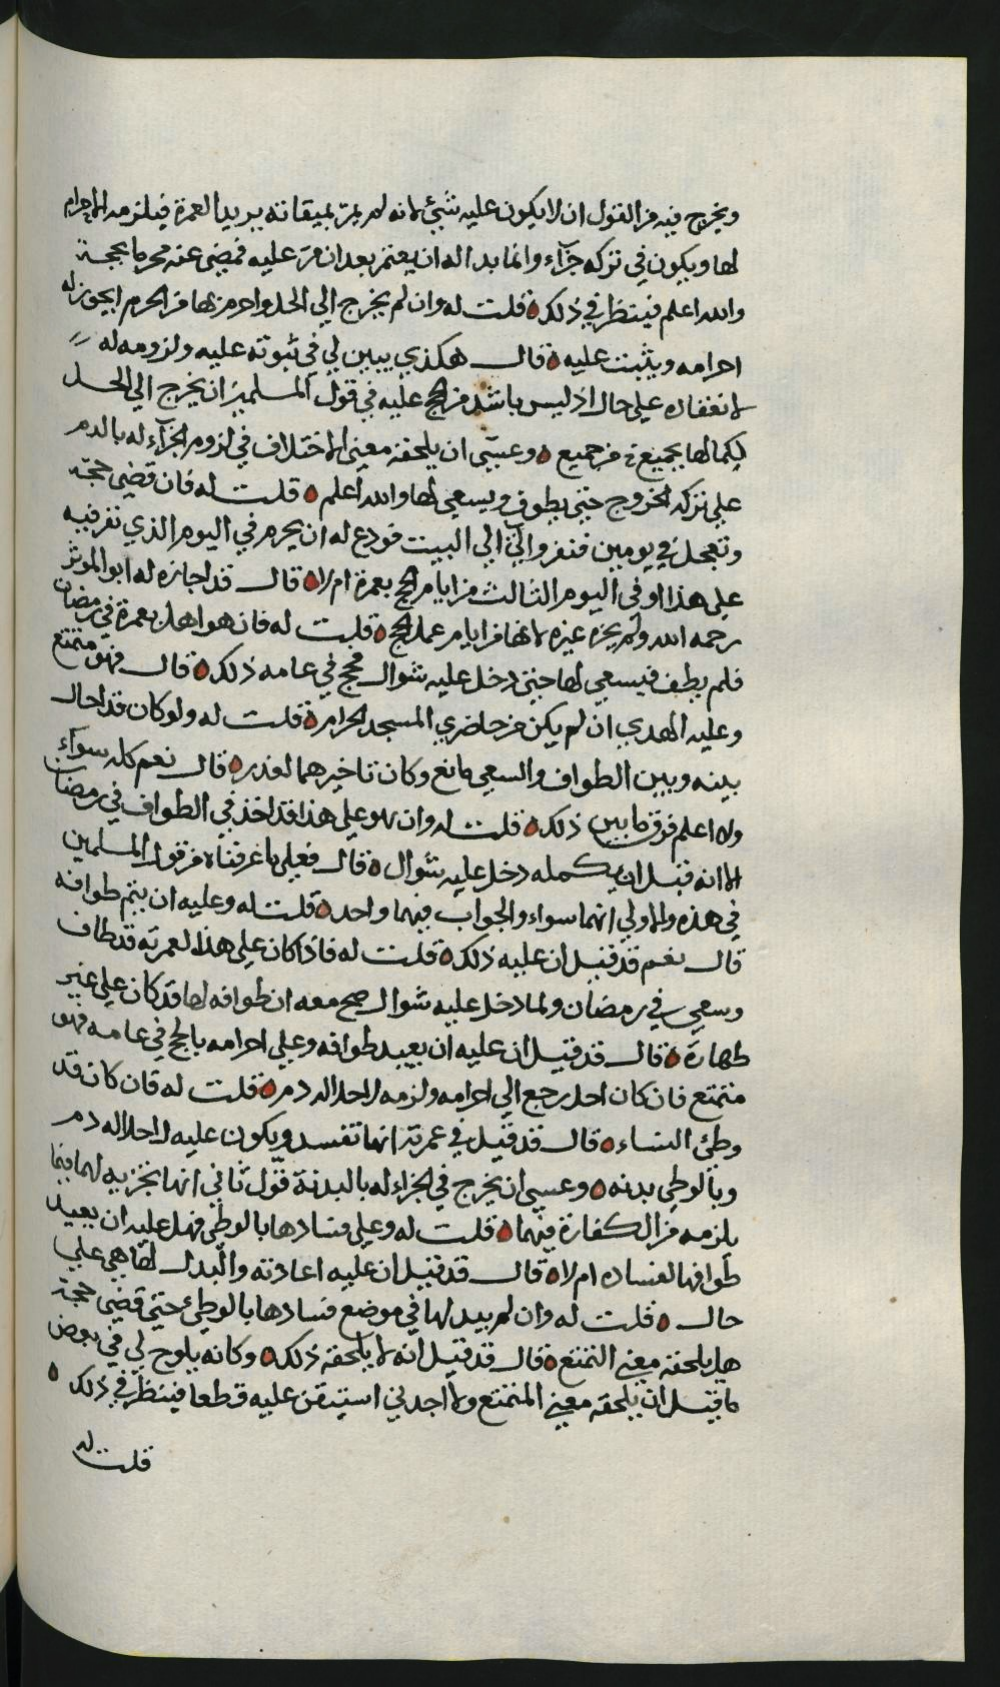 ويخرج فيه من القول ان لا يكون عليه شيئ لانه لم يمر بميقاته يريد العمرة فيلزمه الاحرام
لها ويكون في تركه جزآء وانما بدا له ان يعتمر بعد ان مر عليه فمضى عنه محرما بحجة
والله اعلم فينظر في ذلك قلت له وان لم يخرج الي الحل واحرم بها من الحرم ايجوز له
احرامه ويثبت عليه قال هكذي يبين لي في ثبوته عليه ولزومه له
لانعقاده علي حال اذ ليس باشد من الحج عليه في قول المسلمين ان يخرج الي الحل
ليكمالها بجميع من جميع وعسى ان يلحقه معنى الاختلاف في لزوم الجزآء له بالدم
علي تركه الخروج حتي يطوف ويسعي لها والله اعلم قلت له فان قضى حجه
وتعجل في يومين فنفر واتي الي البيت فودع له ان يحرم في اليوم الذي نفر فيه
علي هذا او في اليوم الثالث من ايام الحج بعمرة ام لا قال قد اجازه له ابو الموثر
رحمه الله ولم يجزه غيره لانها من ايام عمل الحج قلت له فان هو اهل بعمرة في رمضان
فلم يطف فيسعي لها حتى دخل عليه شوال فحج في عامه ذلك قال فهو متمتع
وعليه الهدي ان لم يكن من حاضري المسجد الحرام قلت له ولو كان قد احال
بينه وبين الطواف والسعي مانع وكان تاخيرهما لعذر قال نعم كله سوآء
ولا اعلم فرق ما بين ذلك قلت له وان هو علي هذا قد اخذ في الطواف في رمضان
الا انه قبل ان يكمله دخل عليه شوال قال فعلي ما عرفناه من قول المسلمين
في هذه والاولي انهما سواء والجواب فيهما واحد قلت له وعليه ان يتم طوافه
قال نعم قد قيل ان عليه ذلك قلت له فاذا كان علي هذا لعمرته قد طاف
وسعي في رمضان ولما دخل عليه شوال صح معه ان طوافه لها قد كان علي غير
طهارة قال قد قيل ان عليه ان يعيد طوافه وعلي احرامه بالحج في عامه فهو
متمتع فان كان احل رجع الي احرامه ولزمه لاحلاله دم قلت له فان كان قد
وطئ النساء قال قد قيل في عمرته انها تفسد ويكون عليه لاحلاله دم
وبالوطي بدنه وعسى ان يخرج في الجزاء له بالبدنة قول ثاني انها تجزيه لهما فيما
يلزمه من الكفارة فيهما قلت له وعلي فسادها بالوطي فهل عليه ان يعيد
طوافها لفساده ام لا قال قد قيل ان عليه اعادته والبدل لها هي علي
حال قلت له وان لم يبدلها في موضع فسادها بالوطئ حتى قضى حجة
هل يلحقه معني التمتع قال قد قيل انه لا يلحقه ذلك وكانه يلوح لي في بعض
ما قيل ان يلحقه معني المتمتع ولا اجدني استيقن عليه قطعا فينظر في ذلك
قلت له